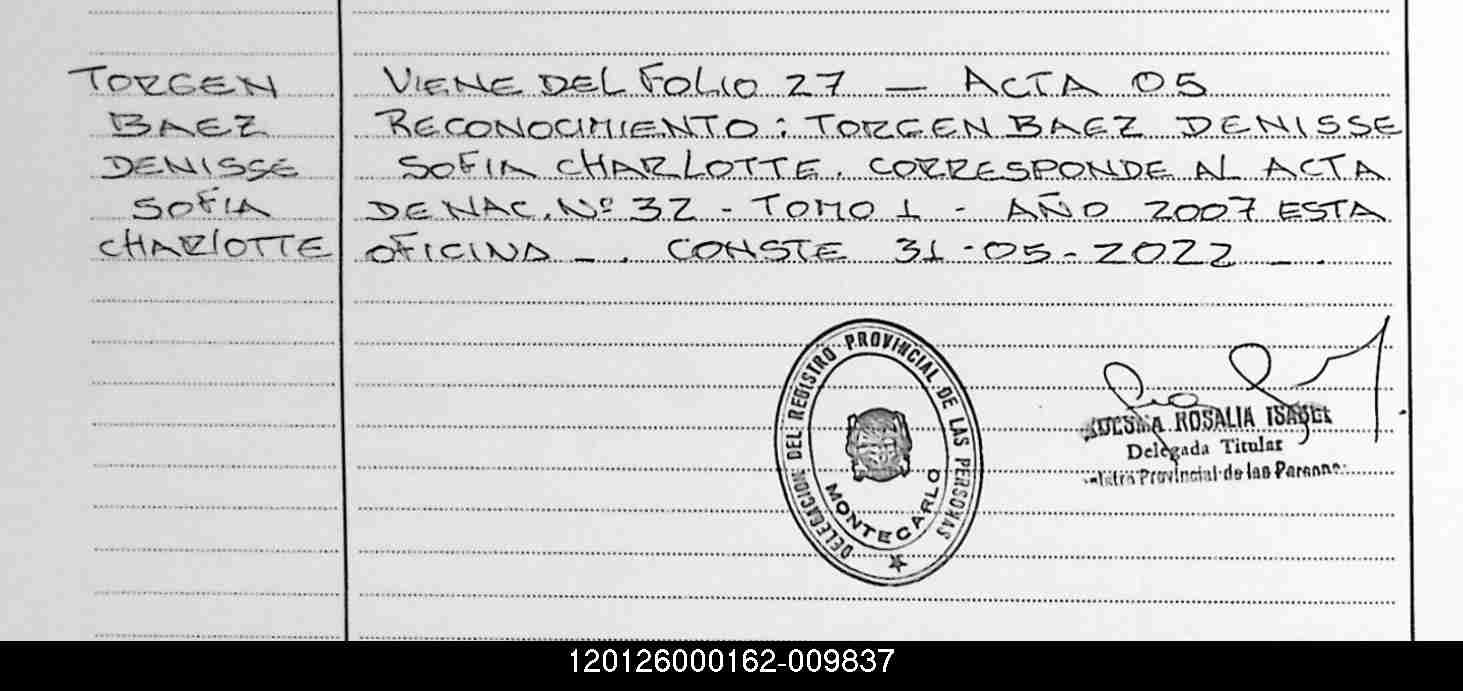 TORGEN
BAEZ
DENISSE
SOFIA
CHARLOTTE
VIENE DEL FOLIO 27 — ACTA 05
RECONOCIMIENTO: TORGEN BAEZ DENISSE
SOFIA CHARLOTTE. CORRESPONDE AL ACTA
DE NAC. Nº 32 - TOMO 1 - AÑO 2007 ESTA
OFICINA - . CONSTE 31-05-2022 - .
DELEGACION DEL REGISTRO PROVINCIAL DE LAS PERSONAS
MONTECARLO
ROSALIA ISABEL
Delegada Titular
Provincial de las Personas
120126000162-009837